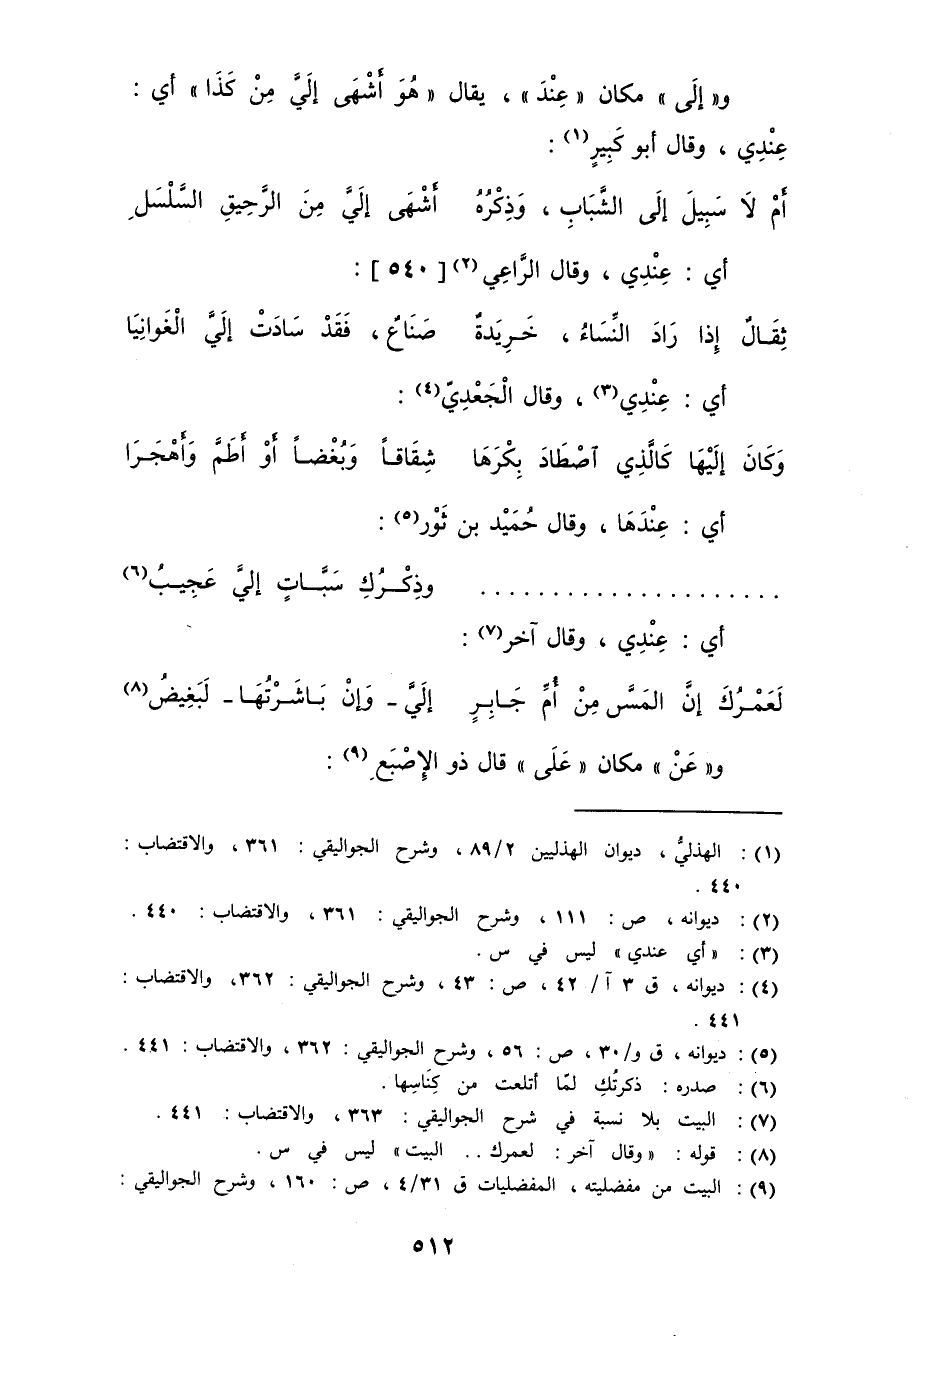 و« إلَى » مكان « عِنْدَ » ، يقال « هُوَ أَشْهَى إلَيَّ مِنْ كَذَا » أي :
عِنْدِي ، وقال أبو كَبِيرٍ(١) :
أَمْ لَا سَبِيلَ إلَى الشَّبَابِ ، وَذِكْرُهُ أَشْهَى إلَيَّ مِنَ الرَّحِيقِ السَّلْسَلِ
أي : عِنْدِي ، وقال الرَّاعِي(٢) [ ٥٤٠ ] :
ثِقَالٌ إِذا رَادَ النِّسَاءُ ، خَرِيدَةٌ صَنَاعٌ ، فَقَدْ سَادَتْ إلَيَّ الْغَوانِيَا
أي : عِنْدِي(٣) ، وقال الْجَعْدِيّ(٤) :
وَكَانَ إلَيْهَا كَالَّذِي ٱصْطَادَ بِكْرَهَا شِقَاقاً وَبُغْضاً أَوْ أَطَمَّ وَأَهْجَرَا
أي : عِنْدَهَا ، وقال حُمَيْد بن ثَوْر(٥) :
. . . . . . . . . . . . . . . . . . . . . وذِكْرُكِ سَبَّاتٍ إليَّ عَجِيبُ(٦)
أي : عِنْدِي ، وقال آخر(٧) :
لَعَمْرُكَ إنَّ المَسَّ مِنْ أُمِّ جَابِرٍ إلَيَّ - وَإنْ بَاشَرْتُهَا - لَبَغِيضُ(٨)
و« عَنْ » مكان « عَلَى » قال ذو الإِصْبَعِ(٩) :
(١) : الهذليُّ ، ديوان الهذليين ٨٩/٢ ، وشرح الجواليقي : ٣٦١ ، والاقتضاب :
٤٤٠ .
(٢) : ديوانه ، ص : ١١١ ، وشرح الجواليقي : ٣٦١ ، والاقتضاب : ٤٤٠ .
(٣) : « أي عندي » ليس في س .
(٤) : ديوانه ، ق ٣ آ/ ٤٢ ، ص : ٤٣ ، وشرح الجواليقي : ٣٦٢ ، والاقتضاب :
٤٤١ .
(٥) : ديوانه ، ق و/٣٠ ، ص : ٥٦ ، وشرح الجواليقي : ٣٦٢ ، والاقتضاب : ٤٤١ .
(٦) : صدره : ذكرتُكِ لمّا أتلعت من كِنَاسِها .
(٧) : البيت بلا نسبة في شرح الجواليقي : ٣٦٣ ، والاقتضاب : ٤٤١ .
(٨) : قوله : « وقال آخر : لعمرك .. البيت » ليس في س .
(٩) : البيت من مفضليته ، المفضليات ق ٤/٣١ ، ص : ١٦٠ ، وشرح الجواليقي :
٥١٢